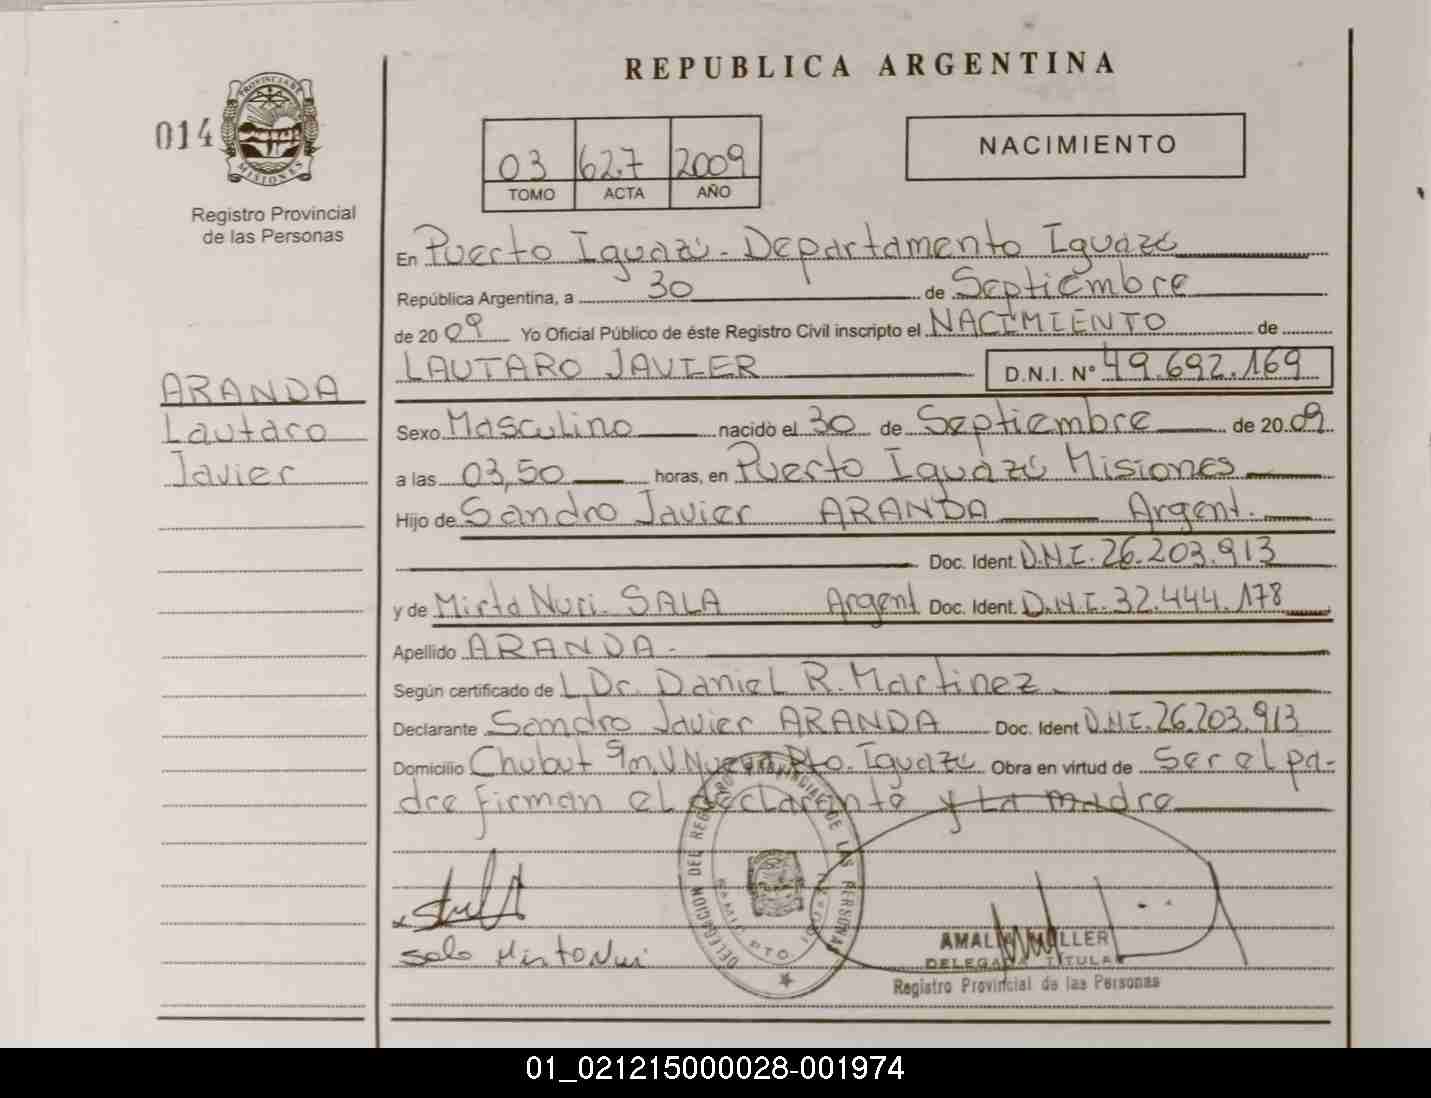 REPUBLICA ARGENTINA
014
PROVINCIA DE
MISIONES
Registro Provincial
de las Personas
03 627 2009
TOMO ACTA AÑO
NACIMIENTO
En Puerto Iguazú - Departamento Iguazú
República Argentina, a 30 de Septiembre
de 20 09 Yo Oficial Público de éste Registro Civil inscripto el NACIMIENTO de
LAUTARO JAVIER D.N.I. N° 49.692.169
ARANDA
Lautaro
Javier
Sexo Masculino nacido el 30 de Septiembre de 20 09
a las 03,50 horas, en Puerto Iguazú Misiones
Hijo de Sandro Javier ARANDA Argent.
Doc. Ident. D.N.I. 26.203.913
y de Mirta Nuri. SALA Argent Doc. Ident. D.N.I. 32.444.178
Apellido ARANDA.
Según certificado de L Dr. Daniel R. Martinez.
Declarante Sandro Javier ARANDA Doc. Ident D.N.I. 26.203.913
Domicilio Chubut S/n V. Nueva Pto. Iguazú Obra en virtud de Ser el pa-
dre firman el declarante y La madre
DELEGACION DEL REGISTRO PROVINCIAL DE LAS PERSONAS
PTO
DELEGADA TITULAR
Registro Provincial de las Personas
01_021215000028-001974